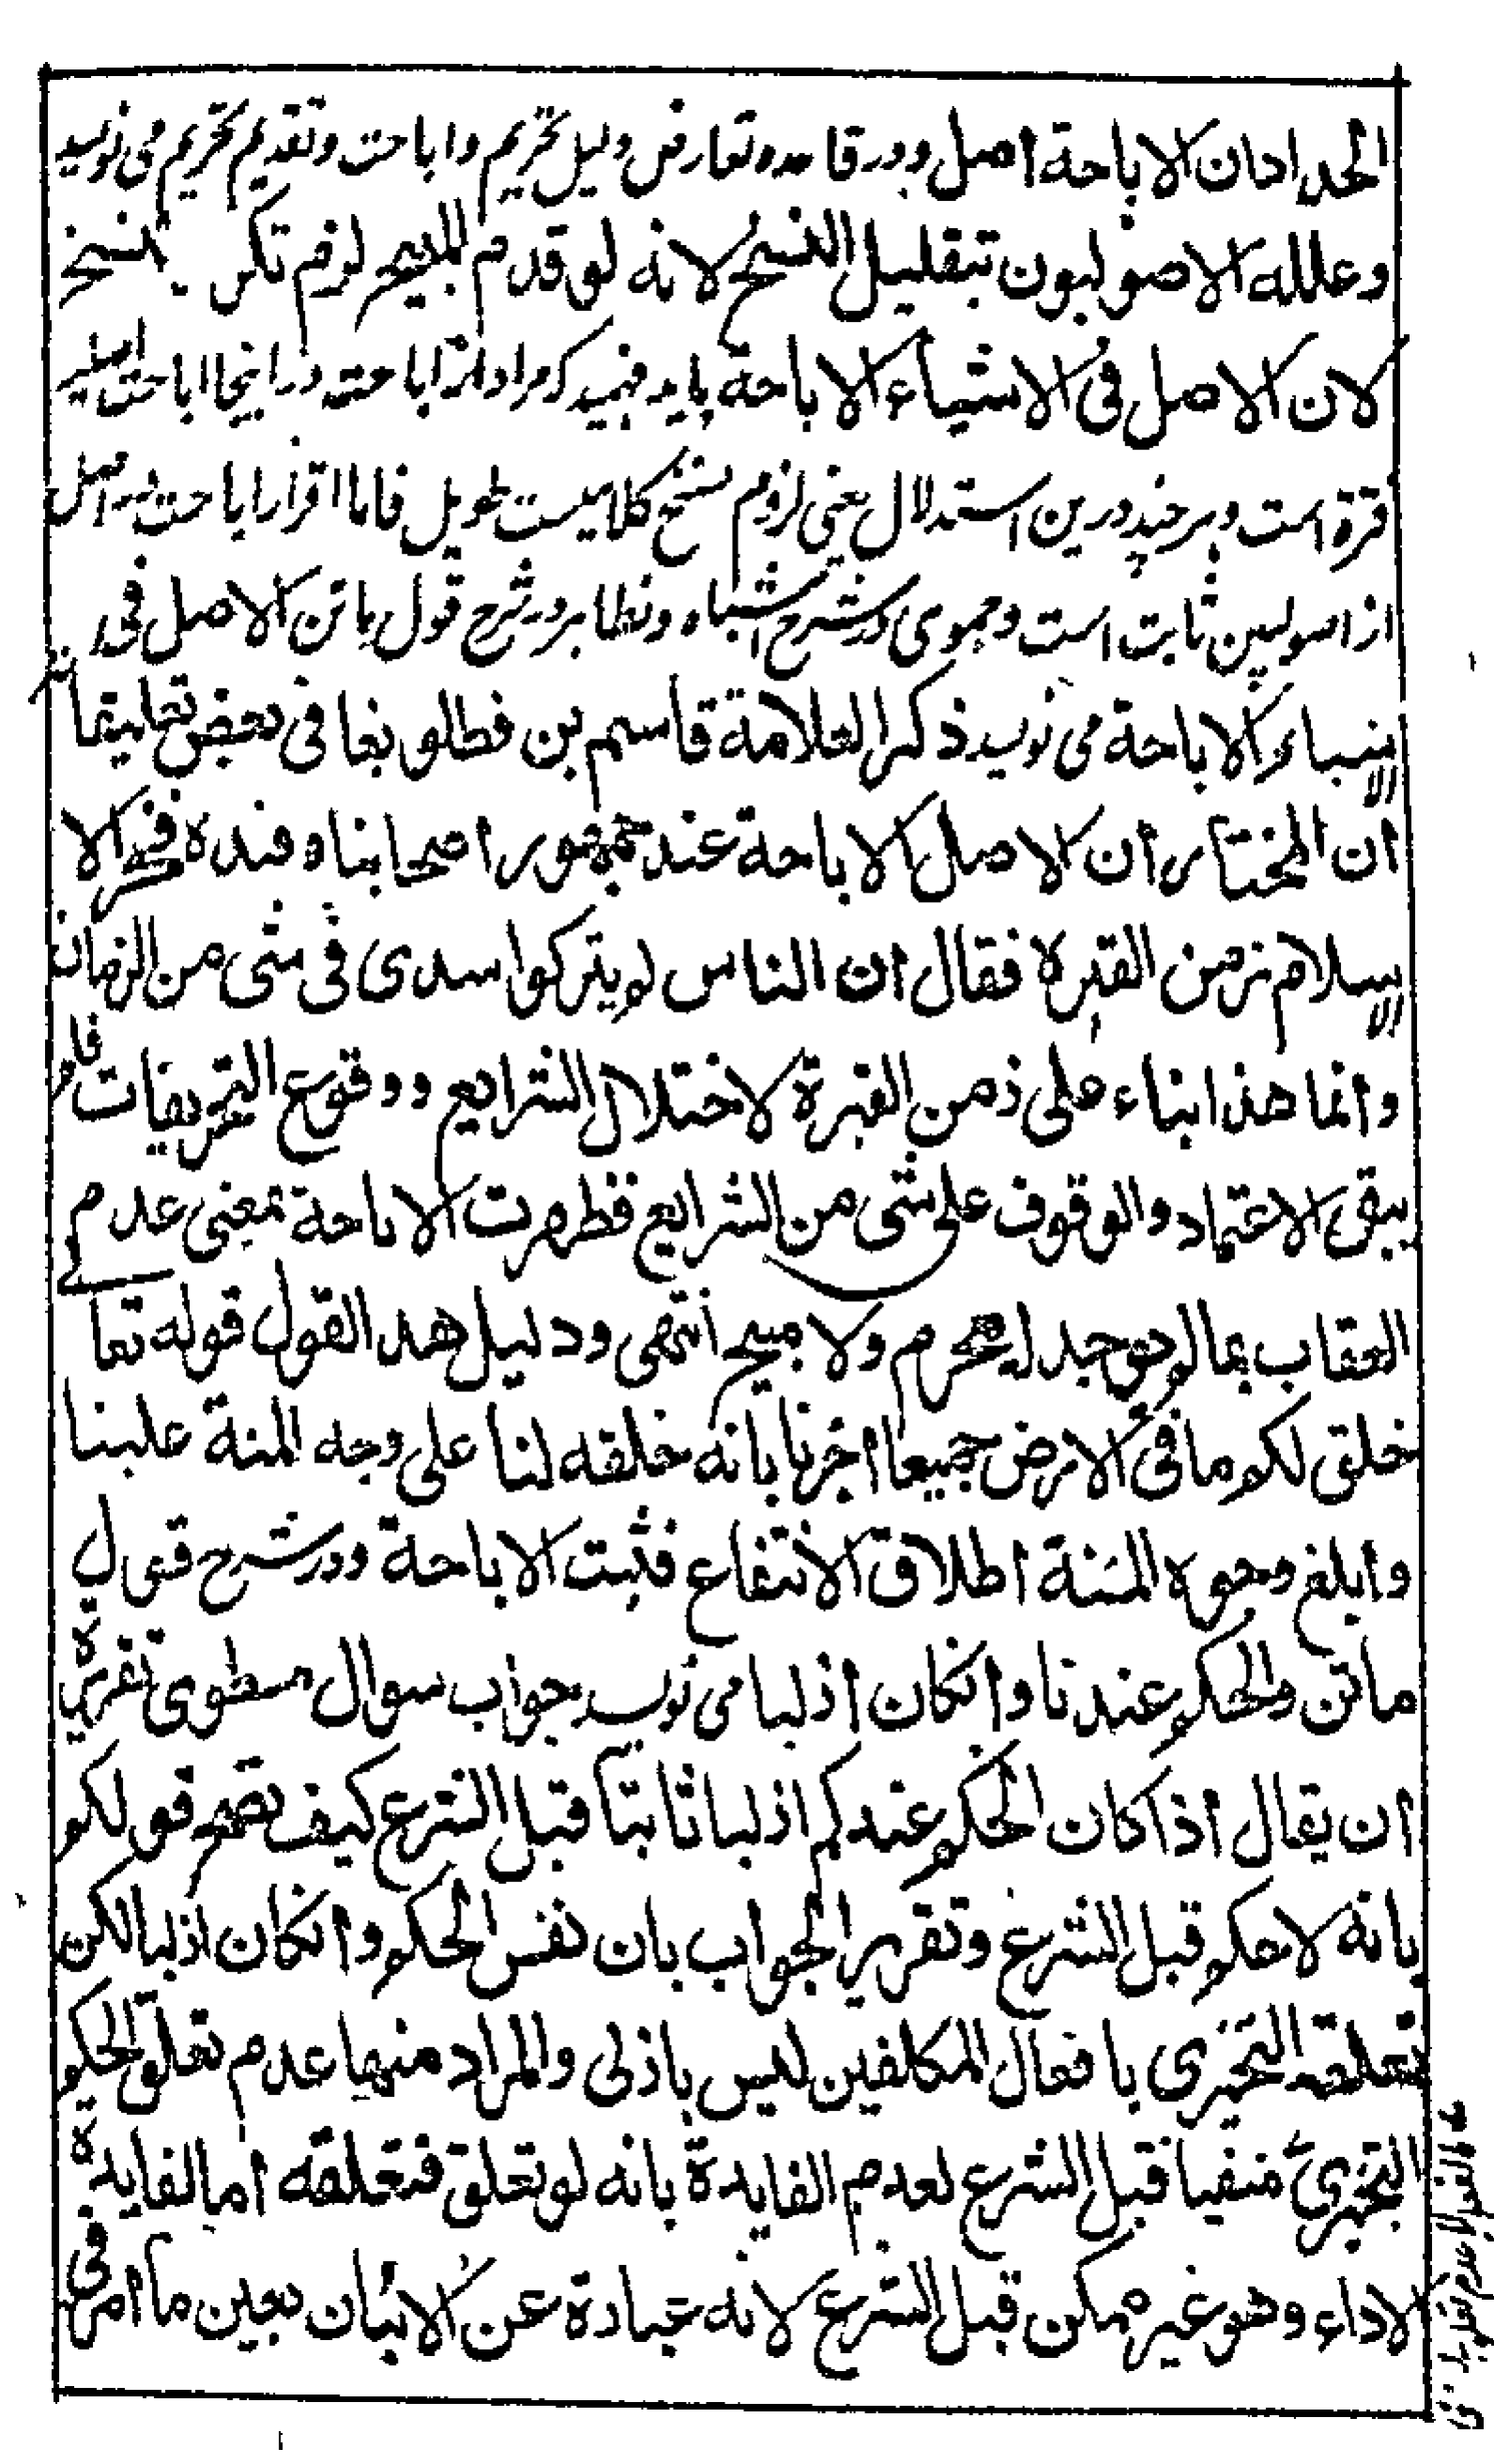 الحدادان الاباحة اصل ودر قاعده تعارض دلیل تحریم واباحت وتقدیم تحریم می نویسد
وعلله الاصولیون بتقلیل النسخ لانه لو قدم المبیح لزم تکرر النسخ
لان الاصل فی الاشیاء الاباحة باید فهمید که مراد از اباحت در اینجا اباحت اصلیه
فترة است وهر چند درین استدلال یعنی لزوم نسخ کلامیست طویل فاما اقرار اباحت در اصل
از اصولیین ثابت است وحموی در شرح اشباه ونظایر در شرح قول ماتن الاصل فی
الاشیاء الاباحة می نویسد ذکر العلامة قاسم بن قطلوبغا فی بعض تعالیقه
ان المختار ان الاصل الاباحة عند جمهور اصحابنا وقیده فخر الا
سلام بزمن الفترة فقال ان الناس لم یترکوا سدی فی شی من الزمان
وانما هذا بناء علی زمن الفترة لاختلال الشرایع ووقوع التحریفات فلم
یبق الاعتماد والوقوف علی شی من الشرایع فظهرت الاباحة بمعنی عدم
العقاب بما لم یوجد له محرم ولا مبیح انتهی ودلیل هذا القول قوله تعالی
خلق لکم ما فی الارض جمیعا اخبرنا بانه خلقه لنا علی وجه المنة علینا
وابلغ وجوه المنة اطلاق الانتفاع فثبت الاباحة ودر شرح قول
ماتن والحکم عندنا وانکان ازلیا می نویسد جواب سوال مطوی تقریره
ان یقال اذا کان الحکم عندکم ازلیا ثابتا قبل الشرع کیف یصح قولکم
بانه لاحکم قبل الشرع وتقریر الجواب بان نفس الحکم وانکان ازلیا لکن
تعلقه التنجیزی بافعال المکلفین لیس بازلی والمراد منها عدم تعلق الحکم
التنجیزی منفیا قبل الشرع لعدم الفایدة بانه لو تعلق فتعلقه اما لفایدة
الاداء وهو غیر ممکن قبل الشرع لانه عبادة عن الاتیان بعین ما امر فی